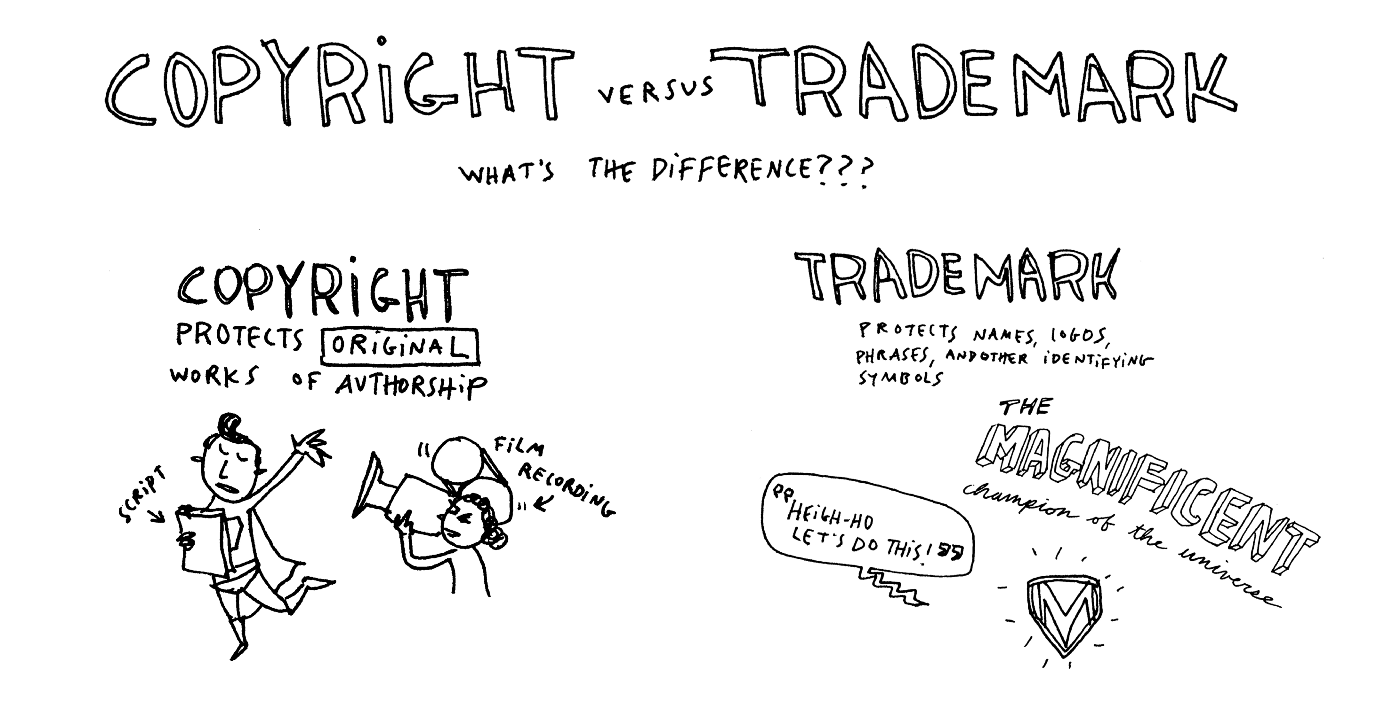 COPYRiGHT VERSUS TRADEMARK
WHAT'S THE DiFFERENCE???
COPYRiGHT
PROTECTS ORiGiNAL
WORKS OF AUTHORSHiP
SCRiPT
FiLM
RECORDiNG
TRADEMARK
PROTECTS NAMES, LOGOS,
PHRASES, AND OTHER iDENTiFYiNG
SYMBOLS
THE
MAGNIFICENT
champion of the universe
"HEiGH-HO
LET'S DO THiS!"
M